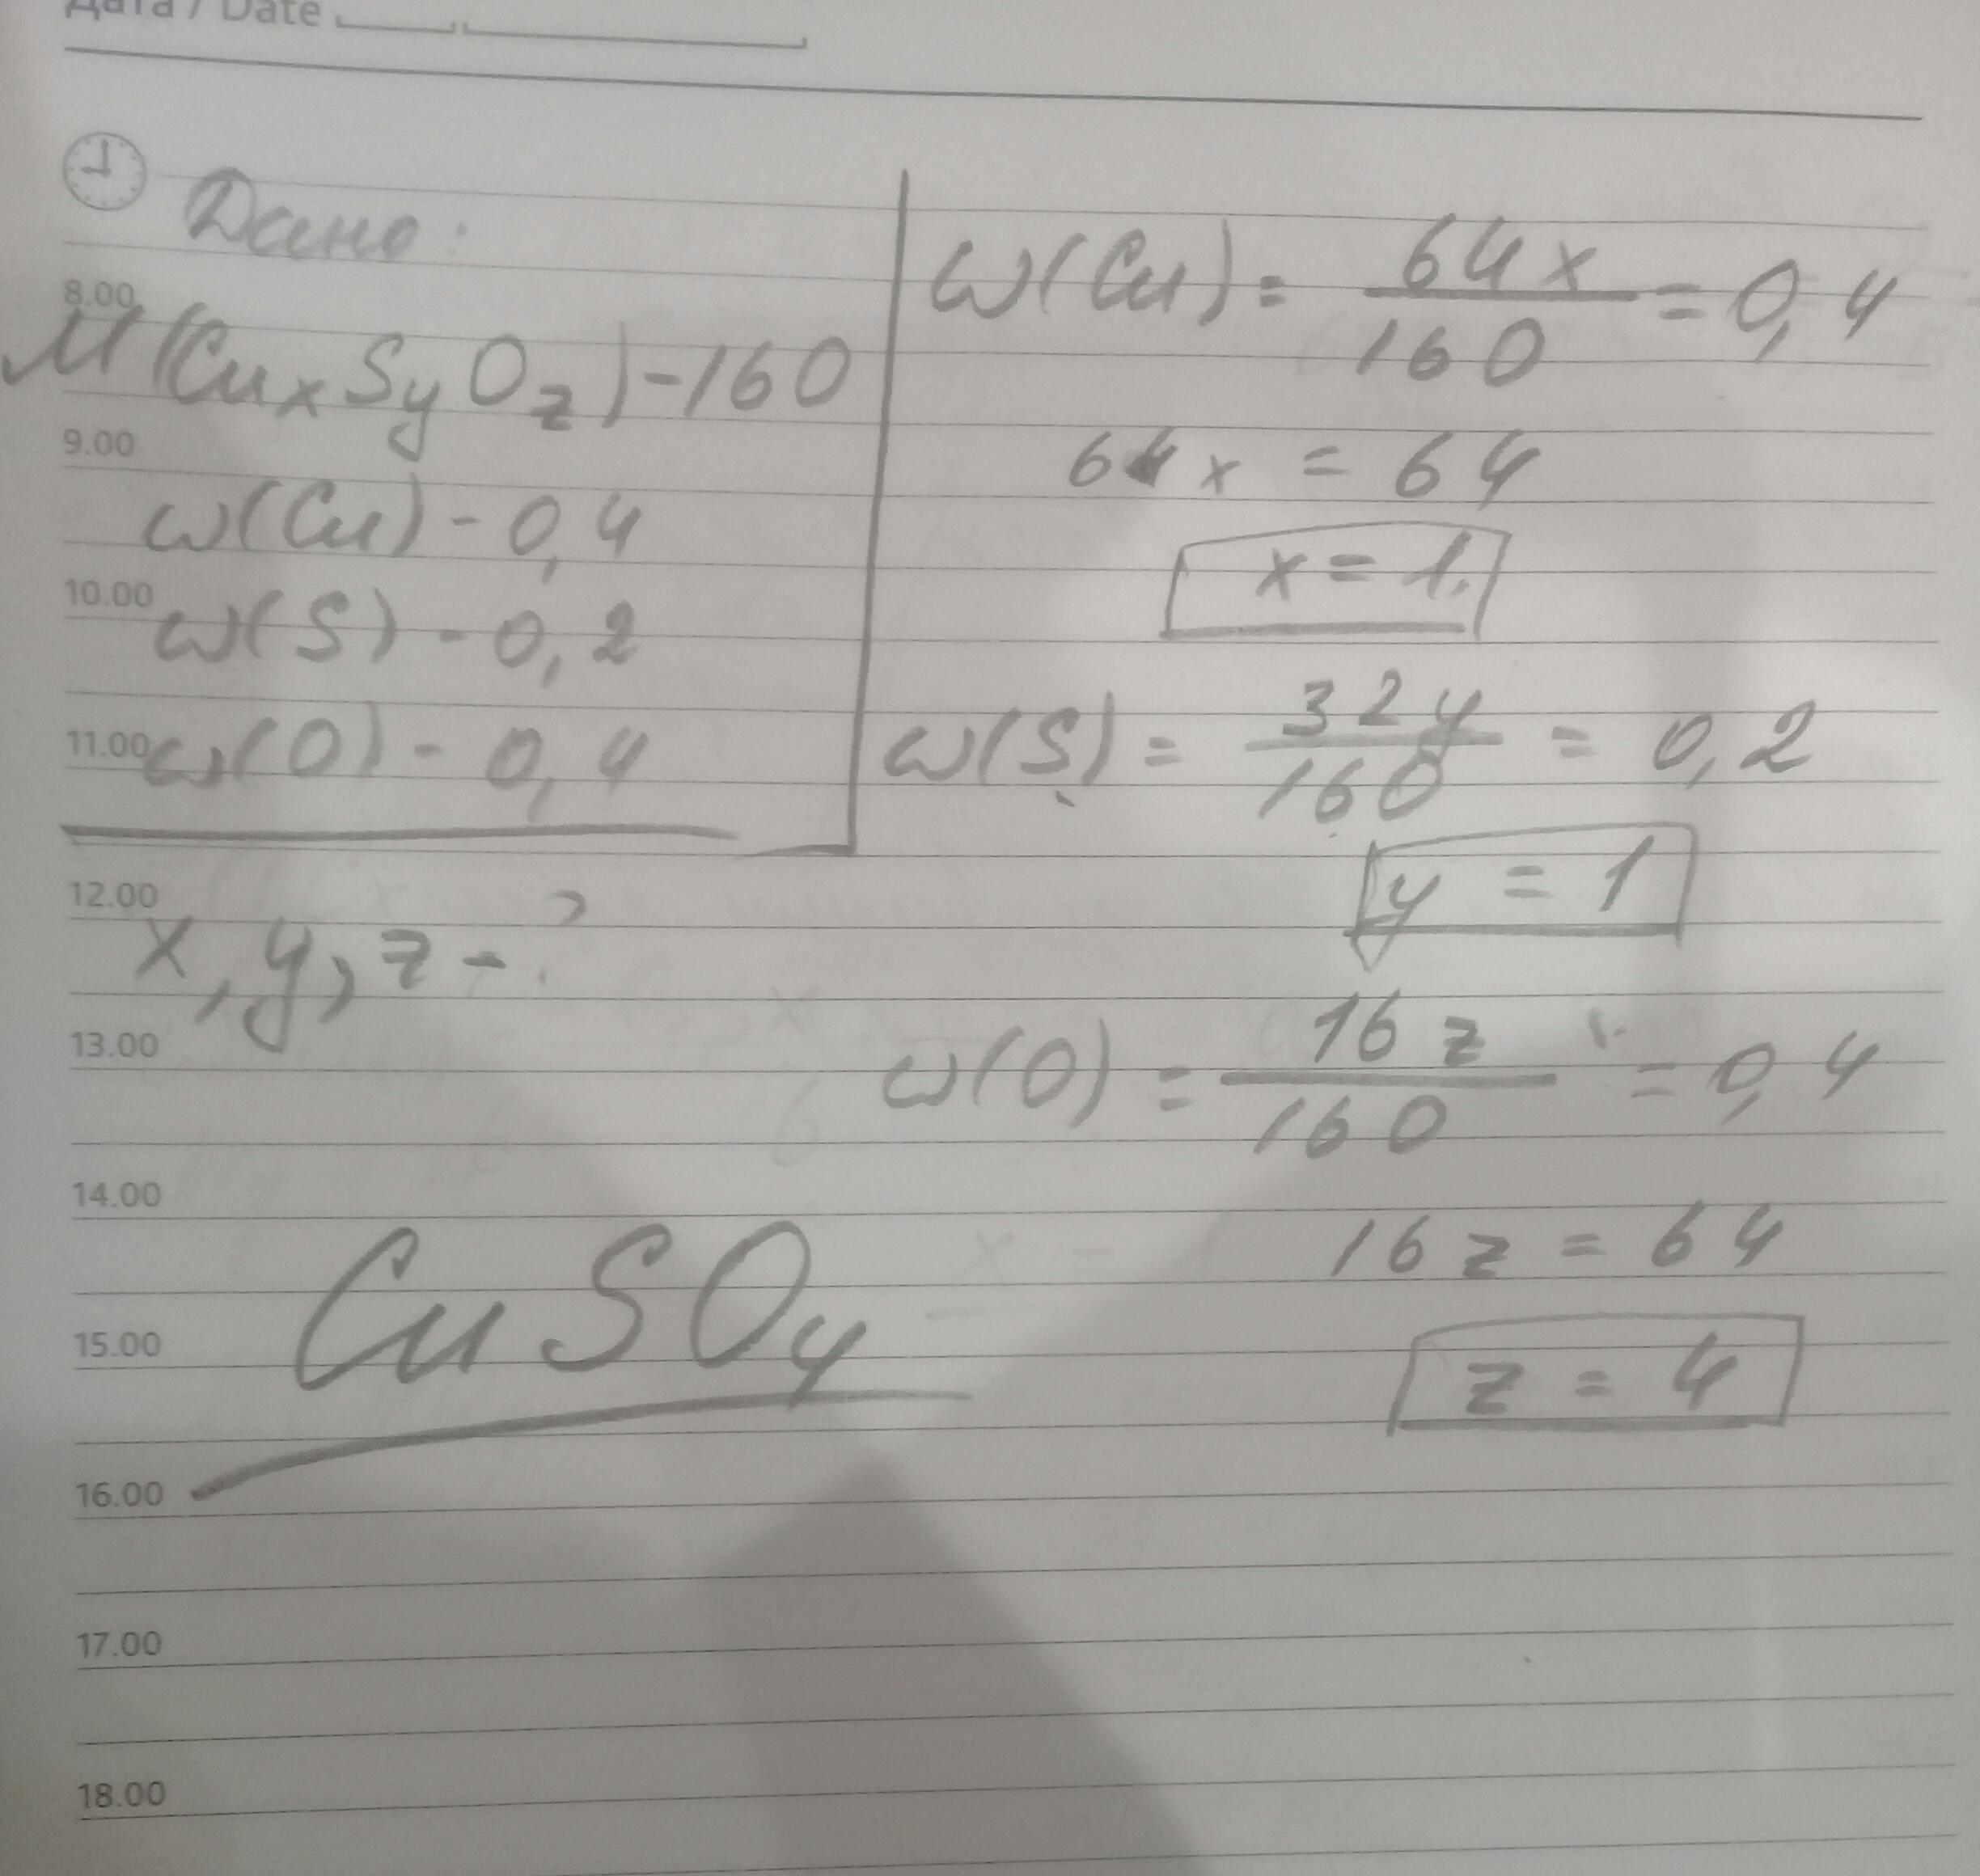 Дата / Date
Дано:
8.00
M(CuxSyOz) - 160
9.00
ω(Cu) - 0,4
10.00
ω(S) - 0,2
11.00
ω(O) - 0,4
12.00
x, y, z - ?
13.00
14.00
CuSO4
15.00
16.00
17.00
18.00
ω(Cu) = 64x/160 = 0,4
64x = 64
x = 1.
ω(S) = 32y/160 = 0,2
y = 1
ω(O) = 16z/160 = 0,4
16z = 64
z = 4